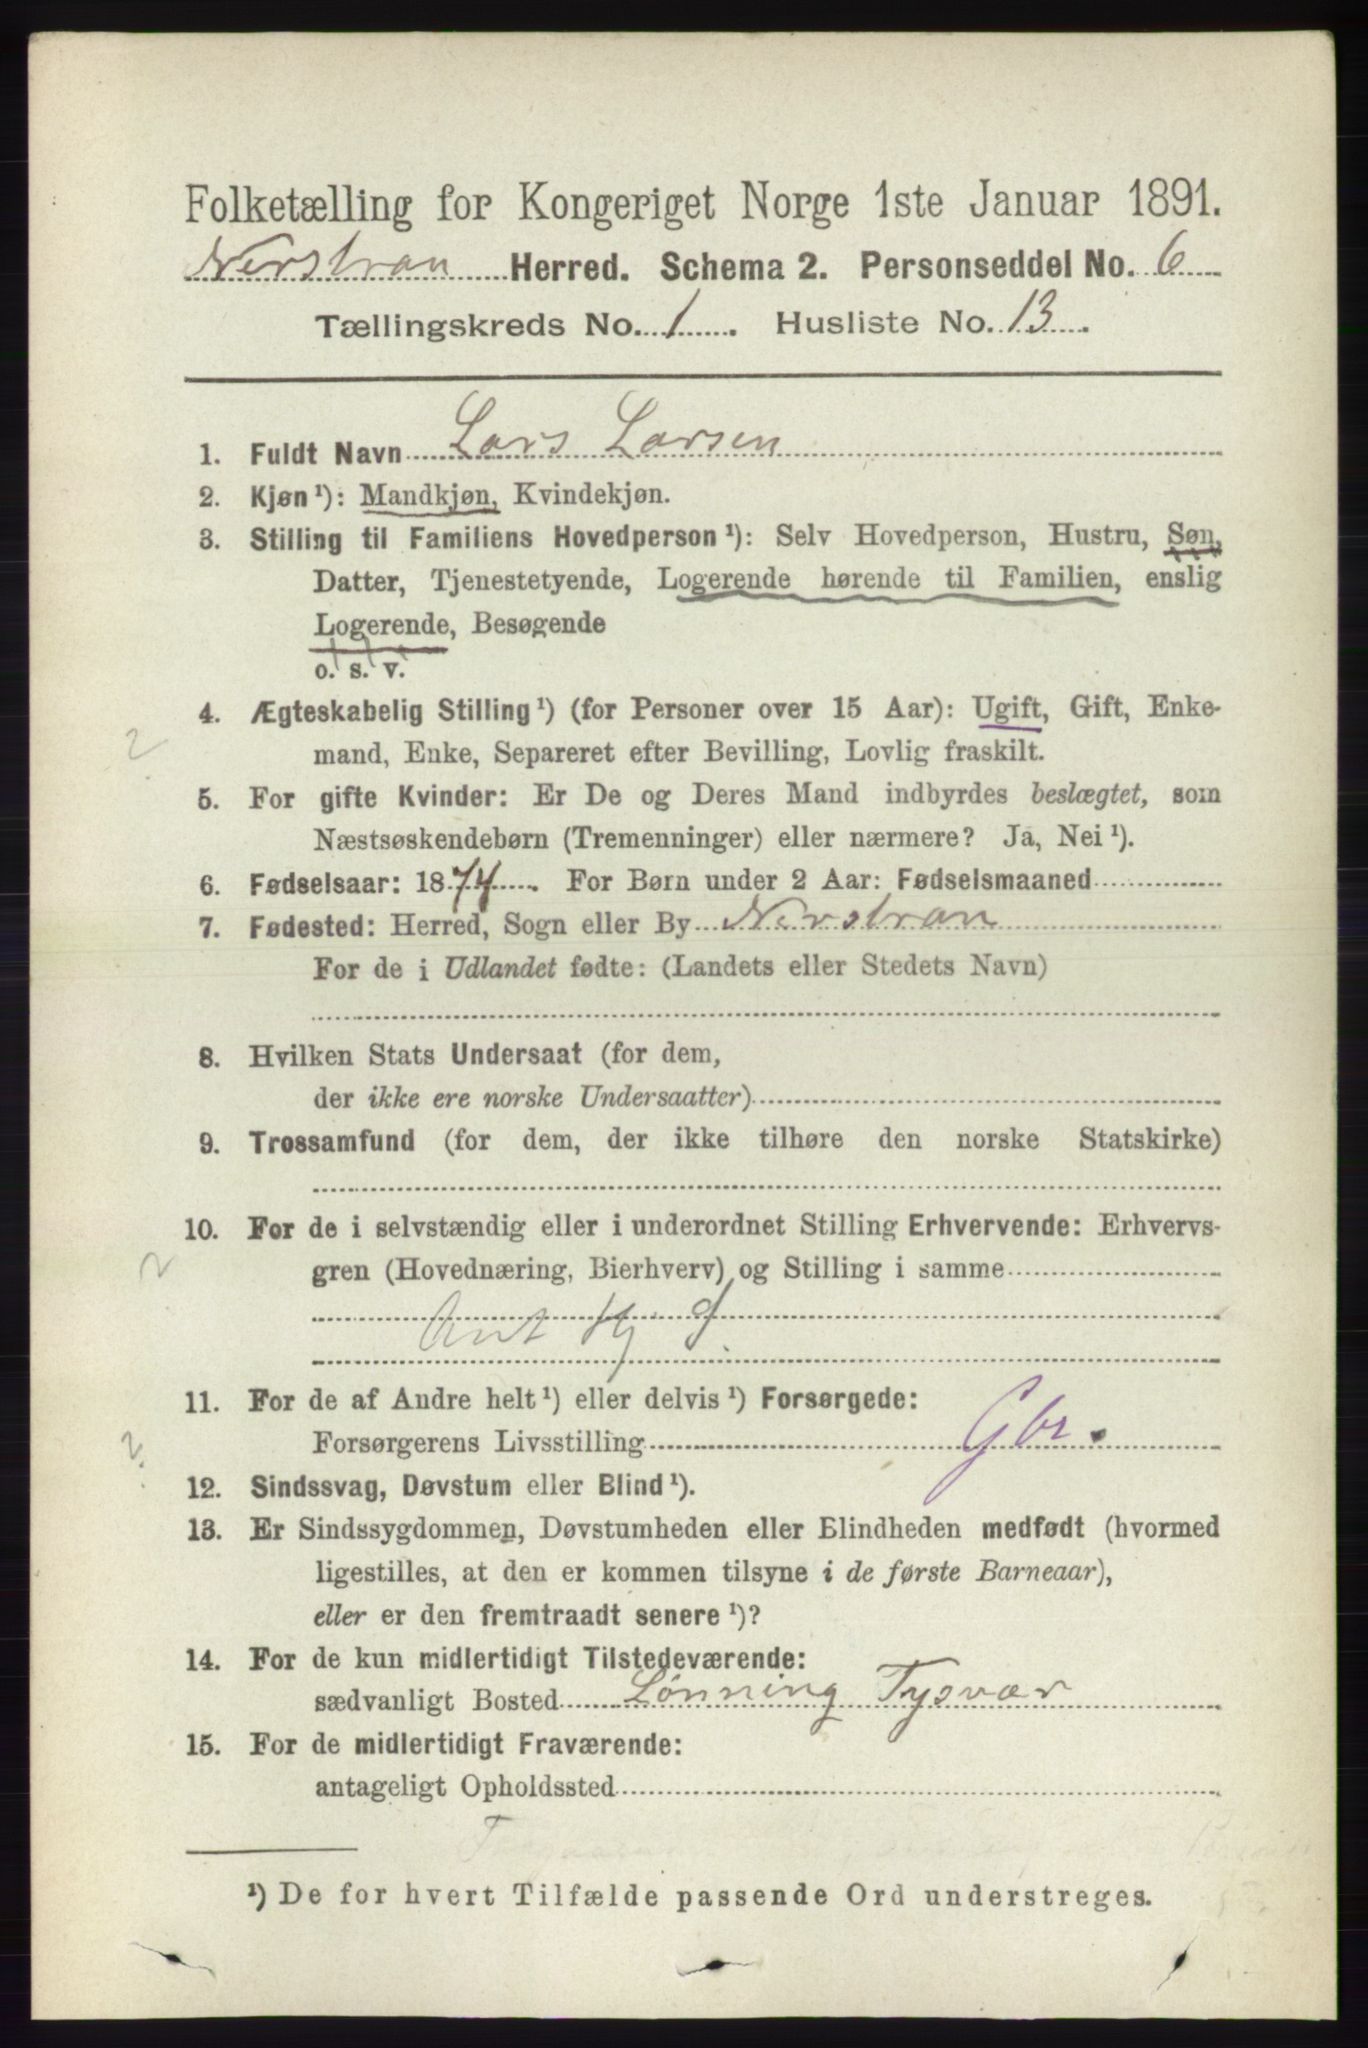 Folketælling for Kongeriget Norge 1ste Januar 1891.
Nerstran Herred. Schema 2. Personseddel No. 6
Tællingskreds No. 1. Husliste No. 13.
1. Fuldt Navn Lars Larsen
2. Kjøn ¹): Mandkjøn, Kvindekjøn.
3. Stilling til Familiens Hovedperson ¹): Selv Hovedperson, Hustru, Søn,
Datter, Tjenestetyende, Logerende hørende til Familien, enslig
Logerende, Besøgende
o. s. v.
4. Ægteskabelig Stilling ¹) (for Personer over 15 Aar): Ugift, Gift, Enke-
mand, Enke, Separeret efter Bevilling, Lovlig fraskilt.
5. For gifte Kvinder: Er De og Deres Mand indbyrdes beslægtet, som
Næstsøskendebørn (Tremenninger) eller nærmere? Ja, Nei ¹).
6. Fødselsaar: 1874. For Børn under 2 Aar: Fødselsmaaned
7. Fødested: Herred, Sogn eller By Nerstran
For de i Udlandet fødte: (Landets eller Stedets Navn)
8. Hvilken Stats Undersaat (for dem,
der ikke ere norske Undersaatter)
9. Trossamfund (for dem, der ikke tilhøre den norske Statskirke)
10. For de i selvstændig eller i underordnet Stilling Erhvervende: Erhvervs-
gren (Hovednæring, Bierhverv) og Stilling i samme
Ant
11. For de af Andre helt ¹) eller delvis ¹) Forsørgede:
Forsørgerens Livsstilling Gbr.
12. Sindssvag, Døvstum eller Blind ¹).
13. Er Sindssygdommen, Døvstumheden eller Blindheden medfødt (hvormed
ligestilles, at den er kommen tilsyne i de første Barneaar),
eller er den fremtraadt senere ¹)?
14. For de kun midlertidigt Tilstedeværende:
sædvanligt Bosted Lønning Tysvær
15. For de midlertidigt Fraværende:
antageligt Opholdssted
¹) De for hvert Tilfælde passende Ord understreges.